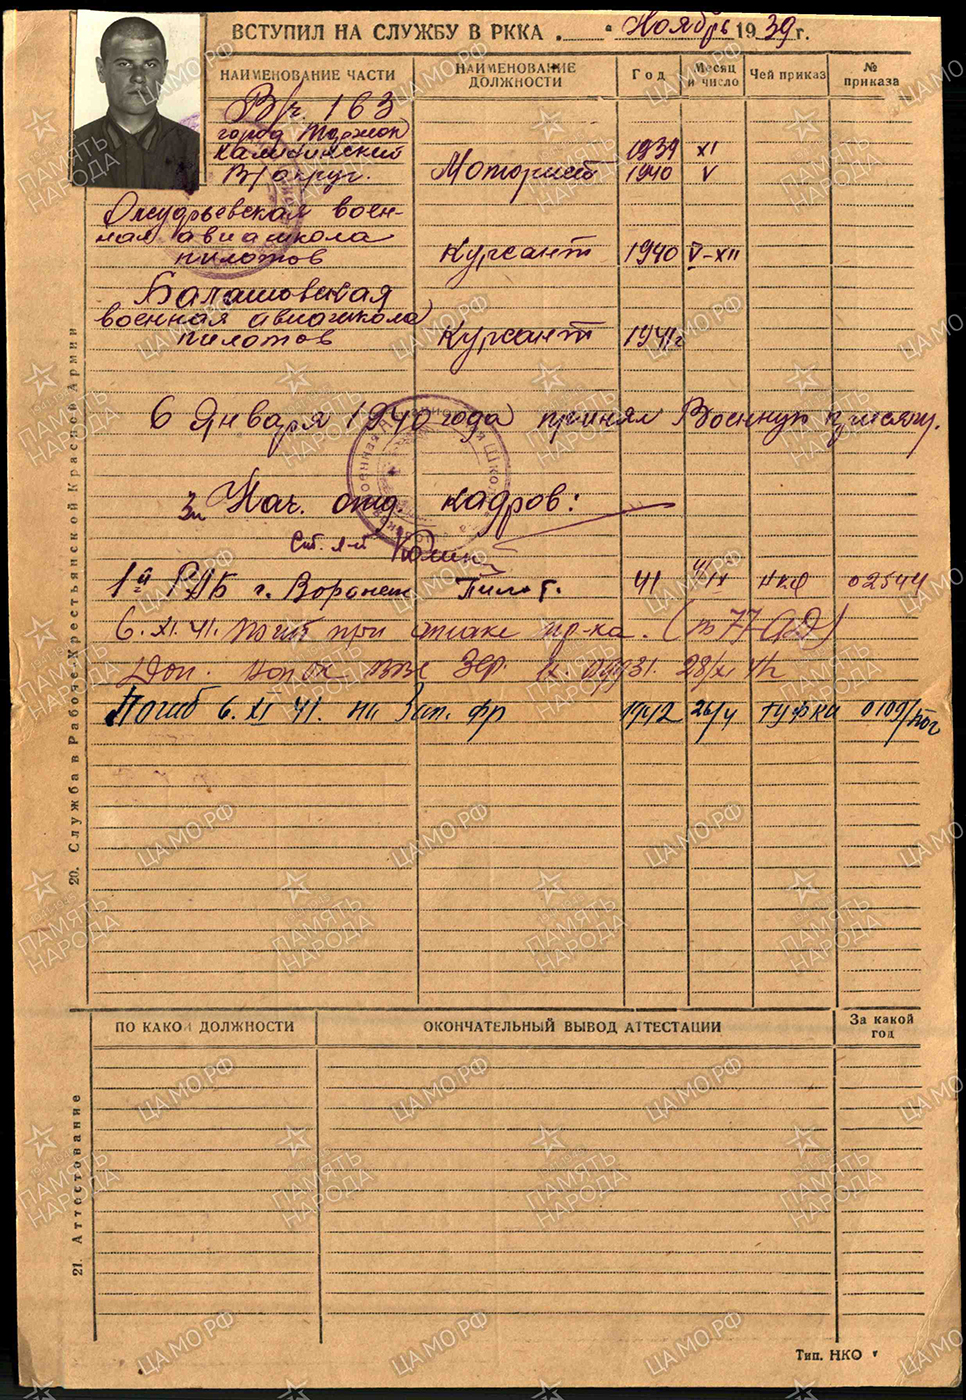 ВСТУПИЛ НА СЛУЖБУ В РККА . " Ноябрь 1939 г.
НАИМЕНОВАНИЕ ЧАСТИ НАИМЕНОВАНИЕ ДОЛЖНОСТИ Год Месяц и число Чей приказ № приказа
В/ч. 163
город Торжок
Калининский 1939 XI
В/округ. Моторист 1940 V
военная
авиашкола
пилотов Курсант 1940 V-XII
Балашовская
военная авиашкола
пилотов Курсант 1941г
6 Января 1940 года принял Военную присягу.
Нач. отд. кадров:
1й г. Воронеж Пилот. 41 IX НКО 02544
6.XI.41. Погиб при атаке пр-ка.
Доп. 28/XI
Погиб 6.XI 41. на Зап. фр 1942 26/V ГУФКА 0109/
20. Служба в Рабоче-Крестьянской Красной Армии
ПО КАКОЙ ДОЛЖНОСТИ ОКОНЧАТЕЛЬНЫЙ ВЫВОД АТТЕСТАЦИИ За какой год
21. Аттестование
Тип. НКО
ПАМЯТЬ НАРОДА
ЦАМО.РФ